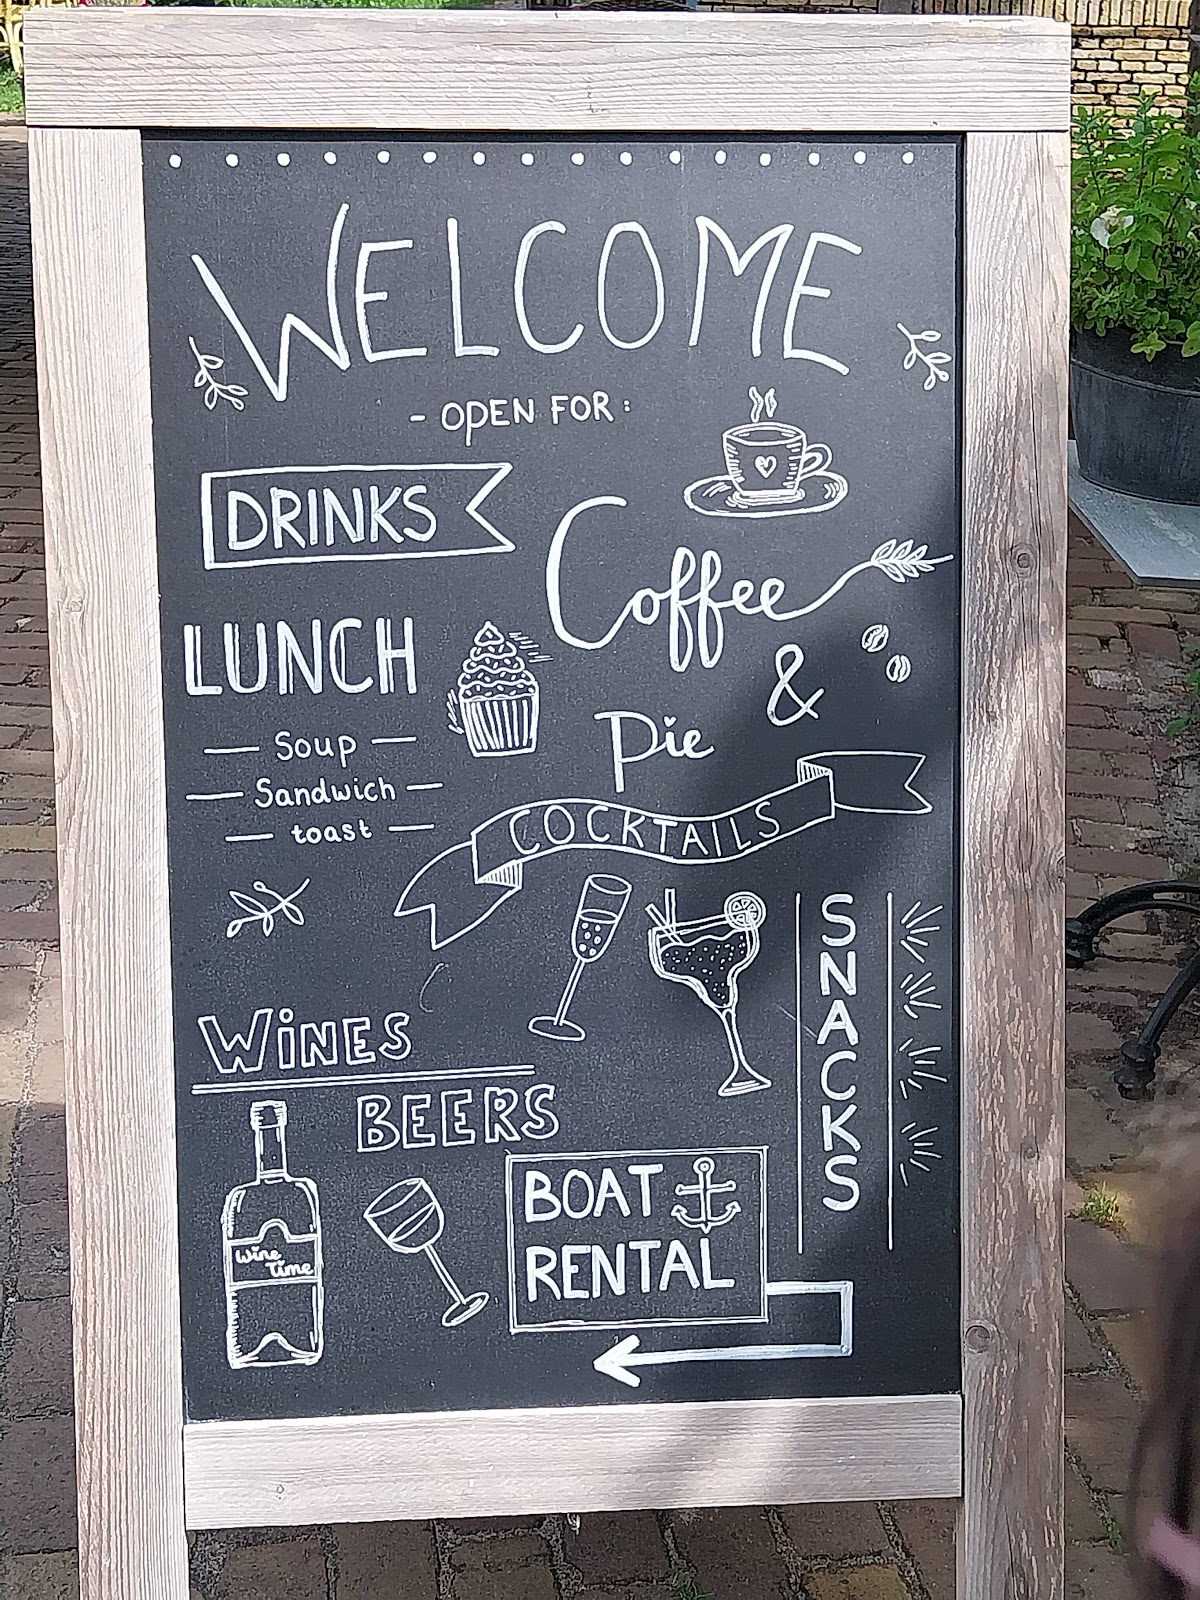 WELCOME
- OPEN FOR:
DRINKS
Coffee
&
Pie
LUNCH
Soup
Sandwich
toast
COCKTAILS
SNACKS
WiNES
BEERS
Wine
Time
BOAT
RENTAL